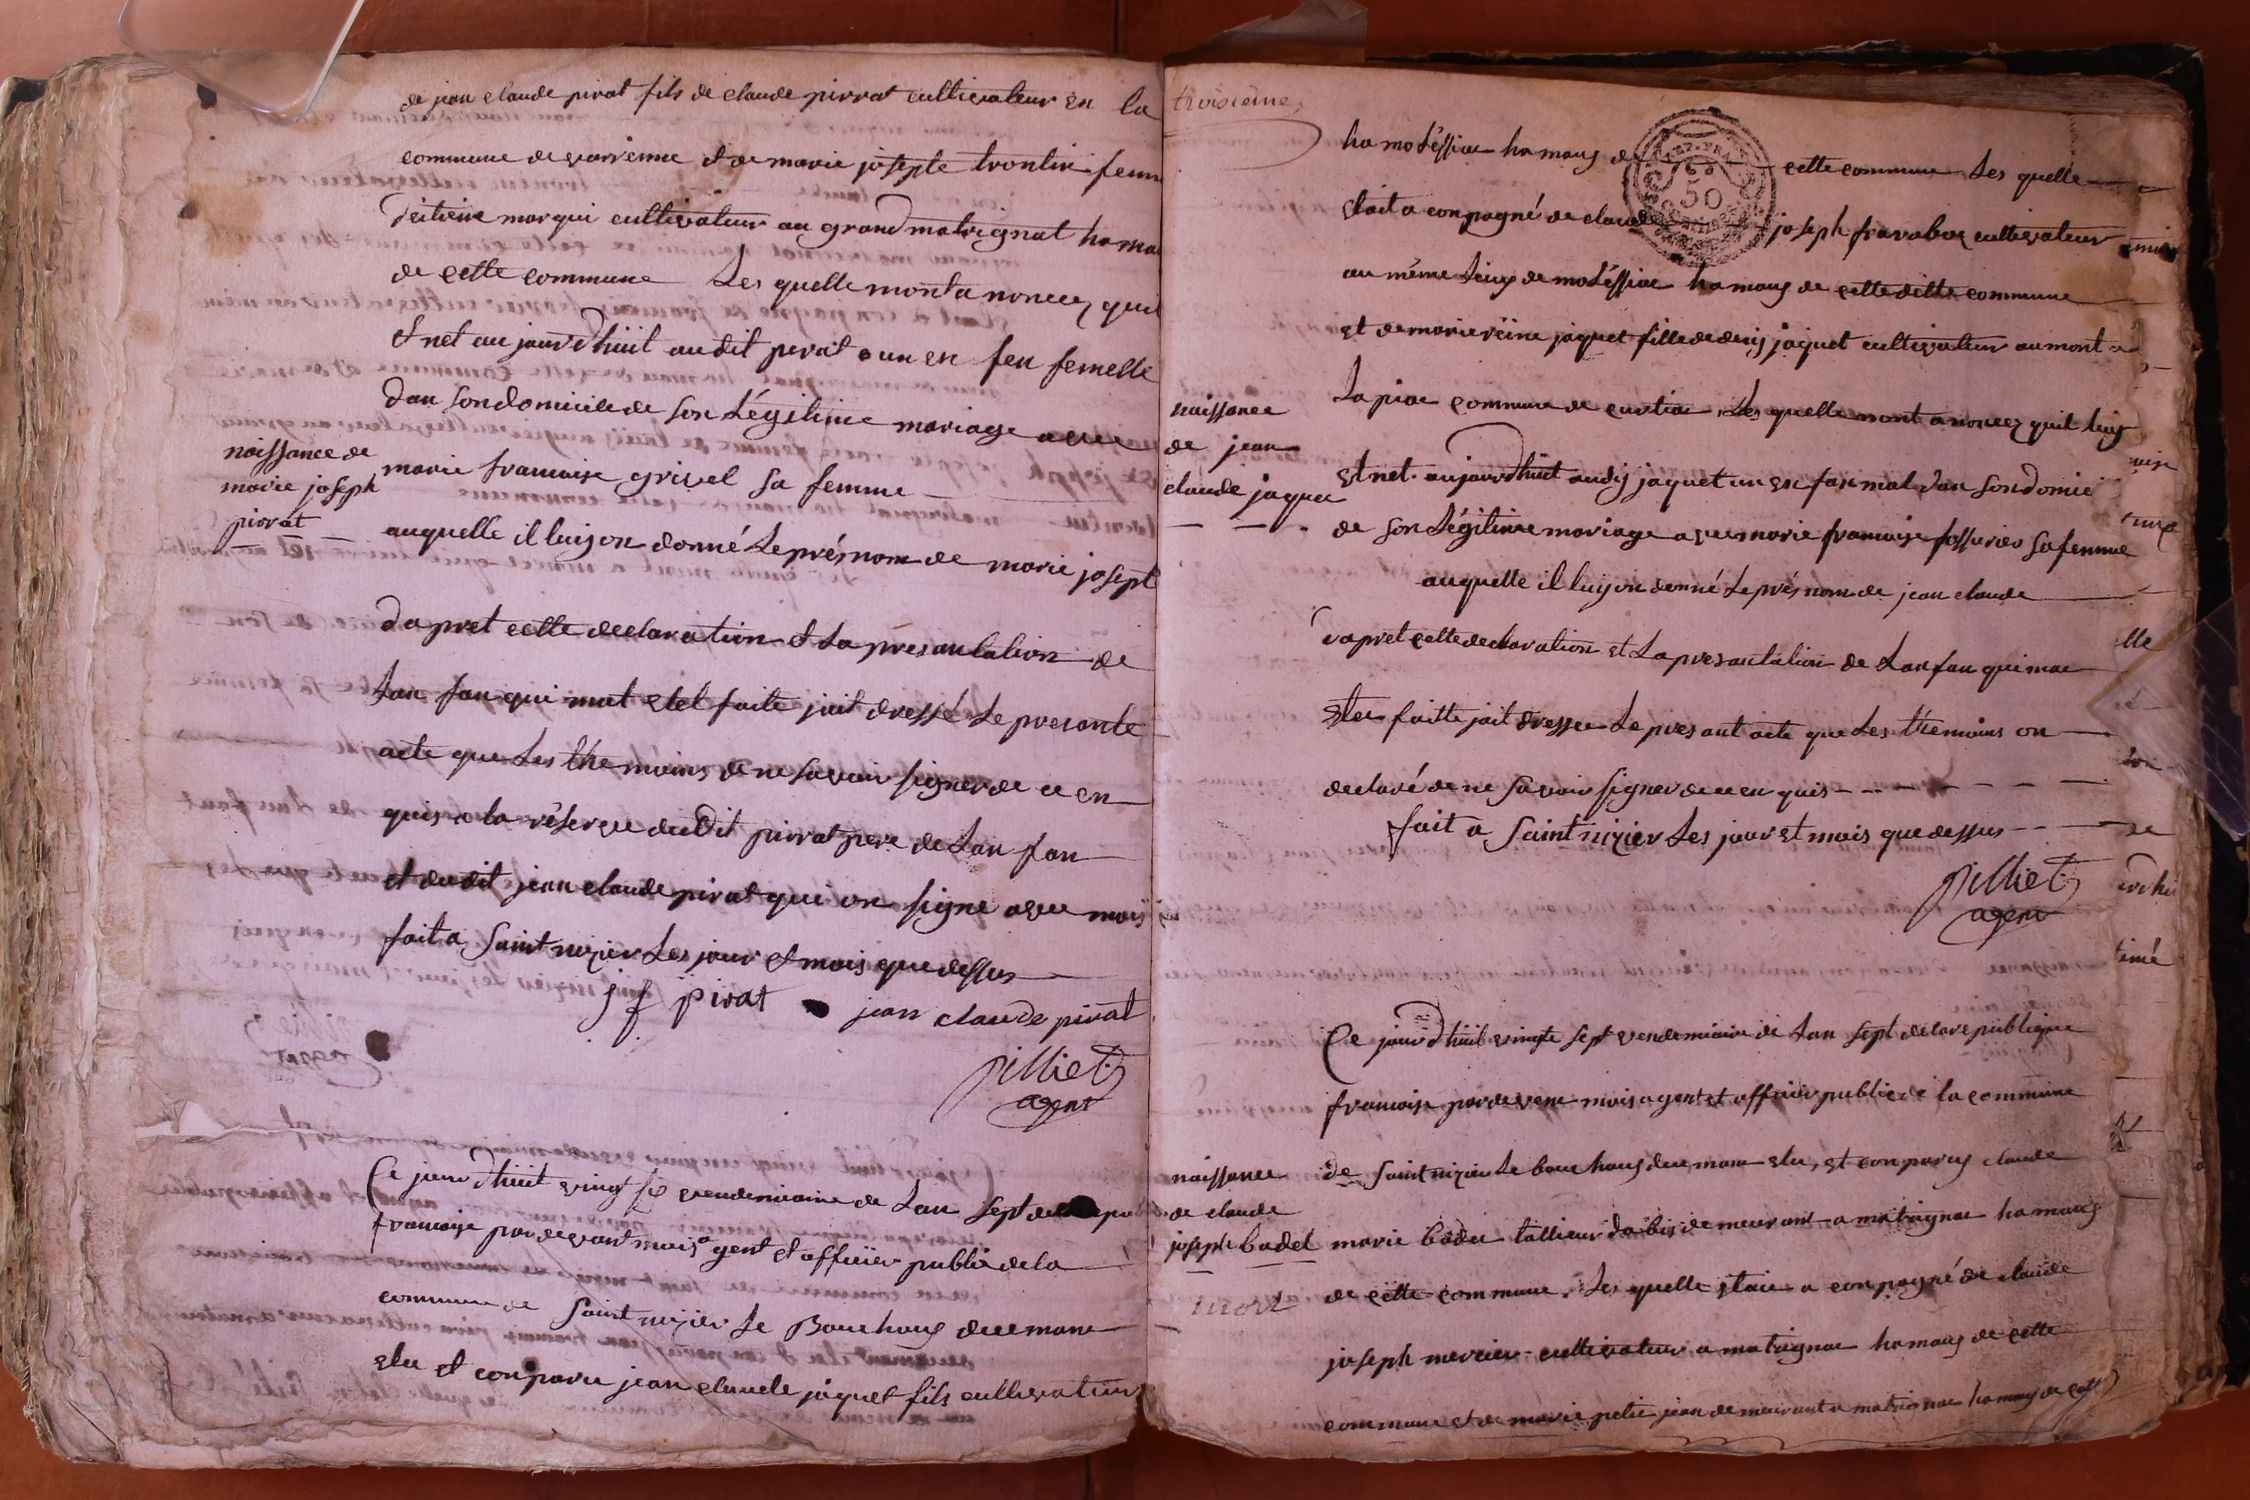 de jean claude pirat fils de claude pirrat cultivateur en la
commune de varrenne et de marie josepte trontin femm
d'étiene marqui cultivateur au grand matrignat hamau
de cette commune Les quelle mont anoncez quil
et net au jourd'huit audit pirat un en fen femelle
dan son domicile de son Légitime mariage avec
naissance de
marie joseph
pirrat
marie francoise grivel sa femme
auquelle il luiz on donné Le présnom de marie josept
dapret cette declaration et La presantation de
Lan fan qui mat etet faite jait dressé Le presante
acte que Les thémoins de ne savoir signer de ce en
quis a la réserve dudit pirrat pere de Lan fan
et dudit jean claude pirat qui on signe avec mois
fait a Saint nizier Les jour et mois que dessus
j f pirat jean claude pirat
pilliet
agent
Ce jourd'huit vingt six vendemiaire de Lan Sept de la repu
francoise par devant mois agent et officier public de la
commune de Saint nizier Le Bouchoux ducmane
elu et conparu jean claude jaquet fils cultivateur
troisième
ha motéssiae hamaus de cette commune Les quelle
50
etait a conpagné de claude joseph fravaboz cultivateur
au même Lieux de motéssiae hamaus de cette ditte commune
et de marie réine jaquet fille de denis jaquet cultivateur au mont
La piae commune de curtiae Les quelle mont anoncez quil luy
naissance
de jean
claude jaquet
et net aujourd'huit audis jaquet un en fan mal dan son domici
de son Légitime mariage avec marie francoise fossuriez sa femme
auquelle il luiy on donné Le présnom de jean claude
dapret cette declaration et La presantation de Lan fan qui mae
etee faitte jait dressee Le presant acte que Les thémoins on
declaré de ne savoir signer de ce en quis
fait a Saint nizier Les jour et mois que dessus
pilliet
agent
Ce jourd'huit vingte sept vendemiaire de Lan Sept de la republique
francoise par devene mois agent et officier public de la commune
naissance
de claude
joseph badet
mort
de Saint nizier Le bouchoux ducmane elu, et conparus claude
marie badet tallieur dabis demeurant a matrignae hamaus
de cette commune. Les quelle etaie a conpagné de claude
joseph mercier cultivateur a matrignae hamaus de cette
commune et de marie petit jean demeurant a matrignae hamaus de cette